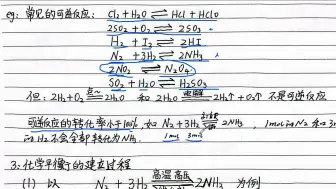 eg: 常见的可逆反应: Cl₂+H₂O ⇌ HCl+HClO
2SO₂+O₂ ⇌ 2SO₃
H₂+I₂ ⇌ 2HI
N₂+3H₂ ⇌ 2NH₃
2NO₂ ⇌ N₂O₄
SO₂+H₂O ⇌ H₂SO₃
但: 2H₂+O₂ 点燃 2H₂O 和 2H₂O 电解 2H₂↑+O₂↑ 不是可逆反应
可逆反应的转化率小于100%, 如 N₂+3H₂ ⇌ 2NH₃, 1mol N₂ 和 3
mol H₂不会全部转化为NH₃. 1mol 3mol
3. 化学平衡的建立过程
(1) 以 N₂+3H₂ 高温高压 2NH₃ 为例